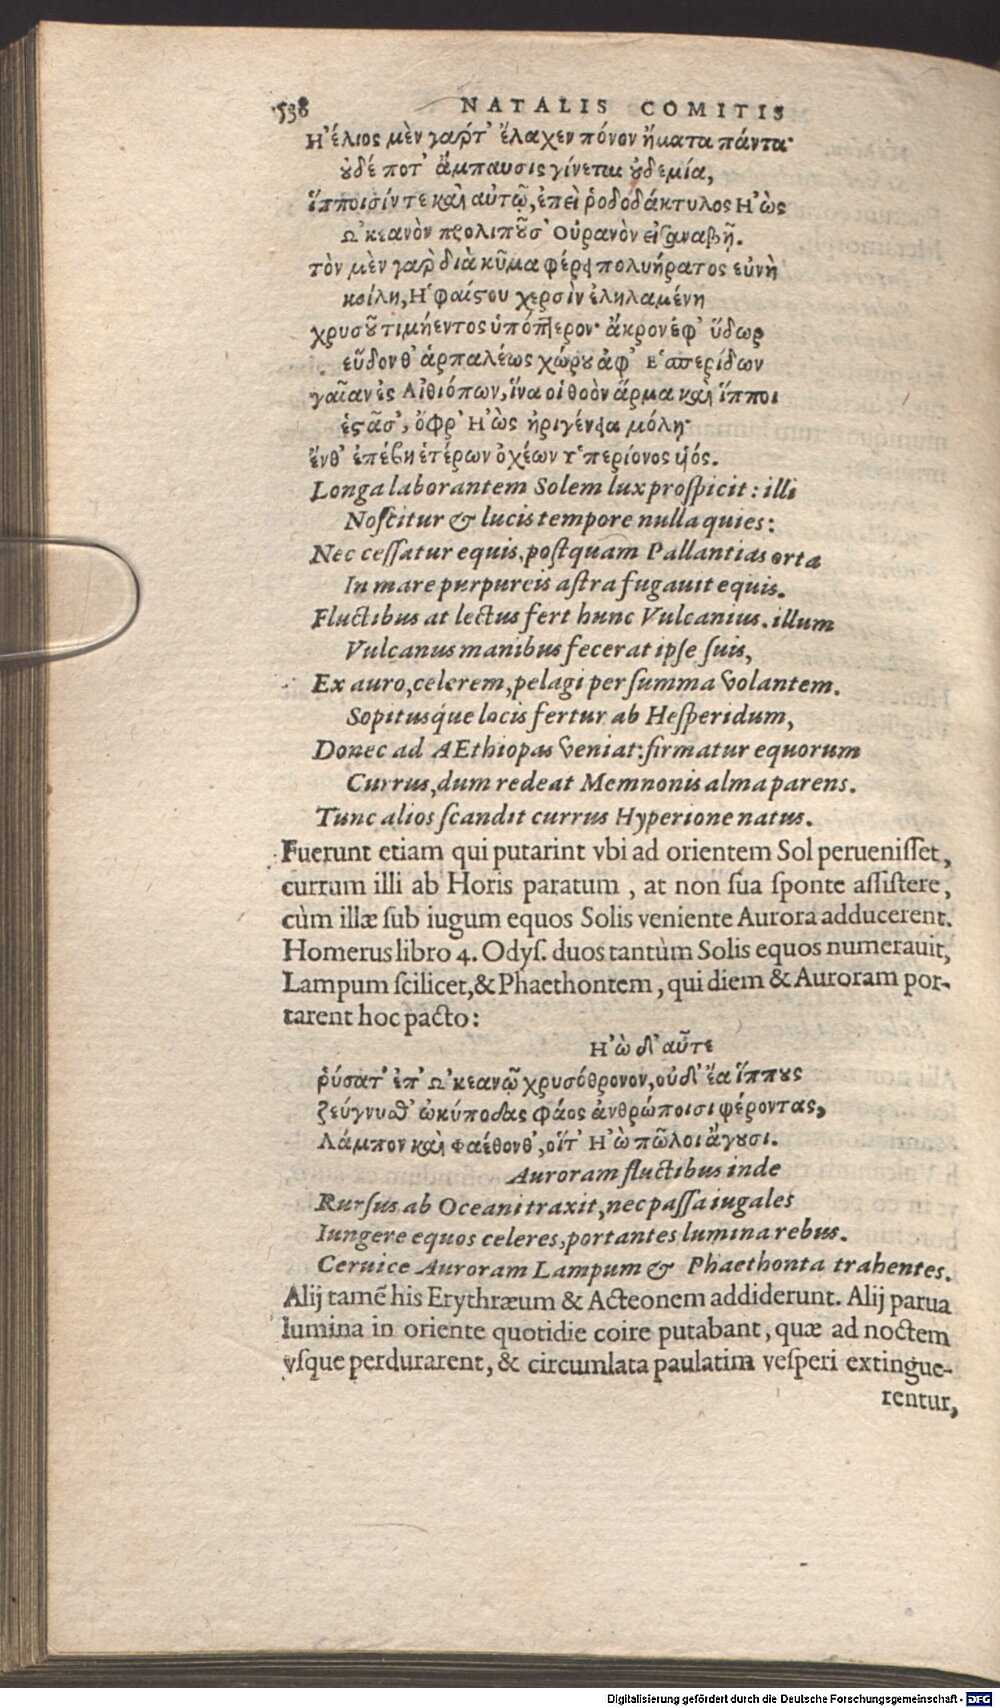 538 NATALIS COMITIS
Ηʼέλιος μὲν γαρ τʼ ἔλαχεν πόνον ἤματα πάντα·
οὐδέ ποτʼ ἄμπαυσις γίνεται οὐδεμία,
ἵπποισίν τε καὶ αὐτῷ, ἐπεὶ ῥοδοδάκτυλος Ηʼὼς
Ωʼκεανὸν προλιποῦσʼ Οὐρανὸν εἰσαναβῇ.
τὸν μὲν γαρ διὰ κῦμα φέρει πολυήρατος εὐνὴ
κοίλη, Ηʽφαίστου χερσὶν ἐληλαμένη
χρυσοῦ τιμήεντος ὑπόπτερον· ἄκρον ἐφʼ ὕδωρ
εὕδονθʼ ἁρπαλέως χώρου ἀφʼ Εʽσπερίδων
γαῖαν ἐς Αἰθιόπων, ἵνα οἱ θοὸν ἅρμα καὶ ἵπποι
ἑστᾶσʼ, ὄφρʼ Ηʼὼς ἠριγένεια μόλη·
ἔνθʼ ἐπέβη ἑτέρων ὀχέων Υʽπερίονος υἱός.
Longa laborantem Solem lux prospicit: illi
Noscitur & lucis tempore nulla quies:
Nec cessatur equis, postquam Pallantias orta
In mare purpureis astra fugauit equis.
Fluctibus at lectus fert hunc Vulcanius. illum
Vulcanus manibus fecerat ipse suis,
Ex auro, celerem, pelagi per summa volantem.
Sopitusque locis fertur ab Hesperidum,
Donec ad AEthiopas veniat: firmatur equorum
Currus, dum redeat Memnonis alma parens.
Tunc alios scandit currus Hyperione natus.
Fuerunt etiam qui putarint vbi ad orientem Sol peruenisset,
currum illi ab Horis paratum, at non sua sponte assistere,
cùm illæ sub iugum equos Solis veniente Aurora adducerent.
Homerus libro 4. Odys. duos tantùm Solis equos numerauit,
Lampum scilicet, & Phaethontem, qui diem & Auroram por-
tarent hoc pacto:
Ηʼὼ δʼ αὖτε
ῥύσατʼ ἐπʼ Ωʼκεανῷ χρυσόθρονον, οὐδʼ ἔα ἵππους
ζεύγνυσθʼ ὠκύποδας φάος ἀνθρώποισι φέροντας,
Λάμπον καὶ Φαέθονθʼ, οἵτʼ Ηʼὼ πῶλοι ἄγουσι.
Auroram fluctibus inde
Rursus ab Oceani traxit, nec passa iugales
Iungere equos celeres, portantes lumina rebus.
Ceruice Auroram Lampum & Phaethonta trahentes.
Alij tamē his Erythræum & Acteonem addiderunt. Alij parua
lumina in oriente quotidie coire putabant, quæ ad noctem
vsque perdurarent, & circumlata paulatim vesperi extingue-
rentur,
Digitalisierung gefördert durch die Deutsche Forschungsgemeinschaft - DFG